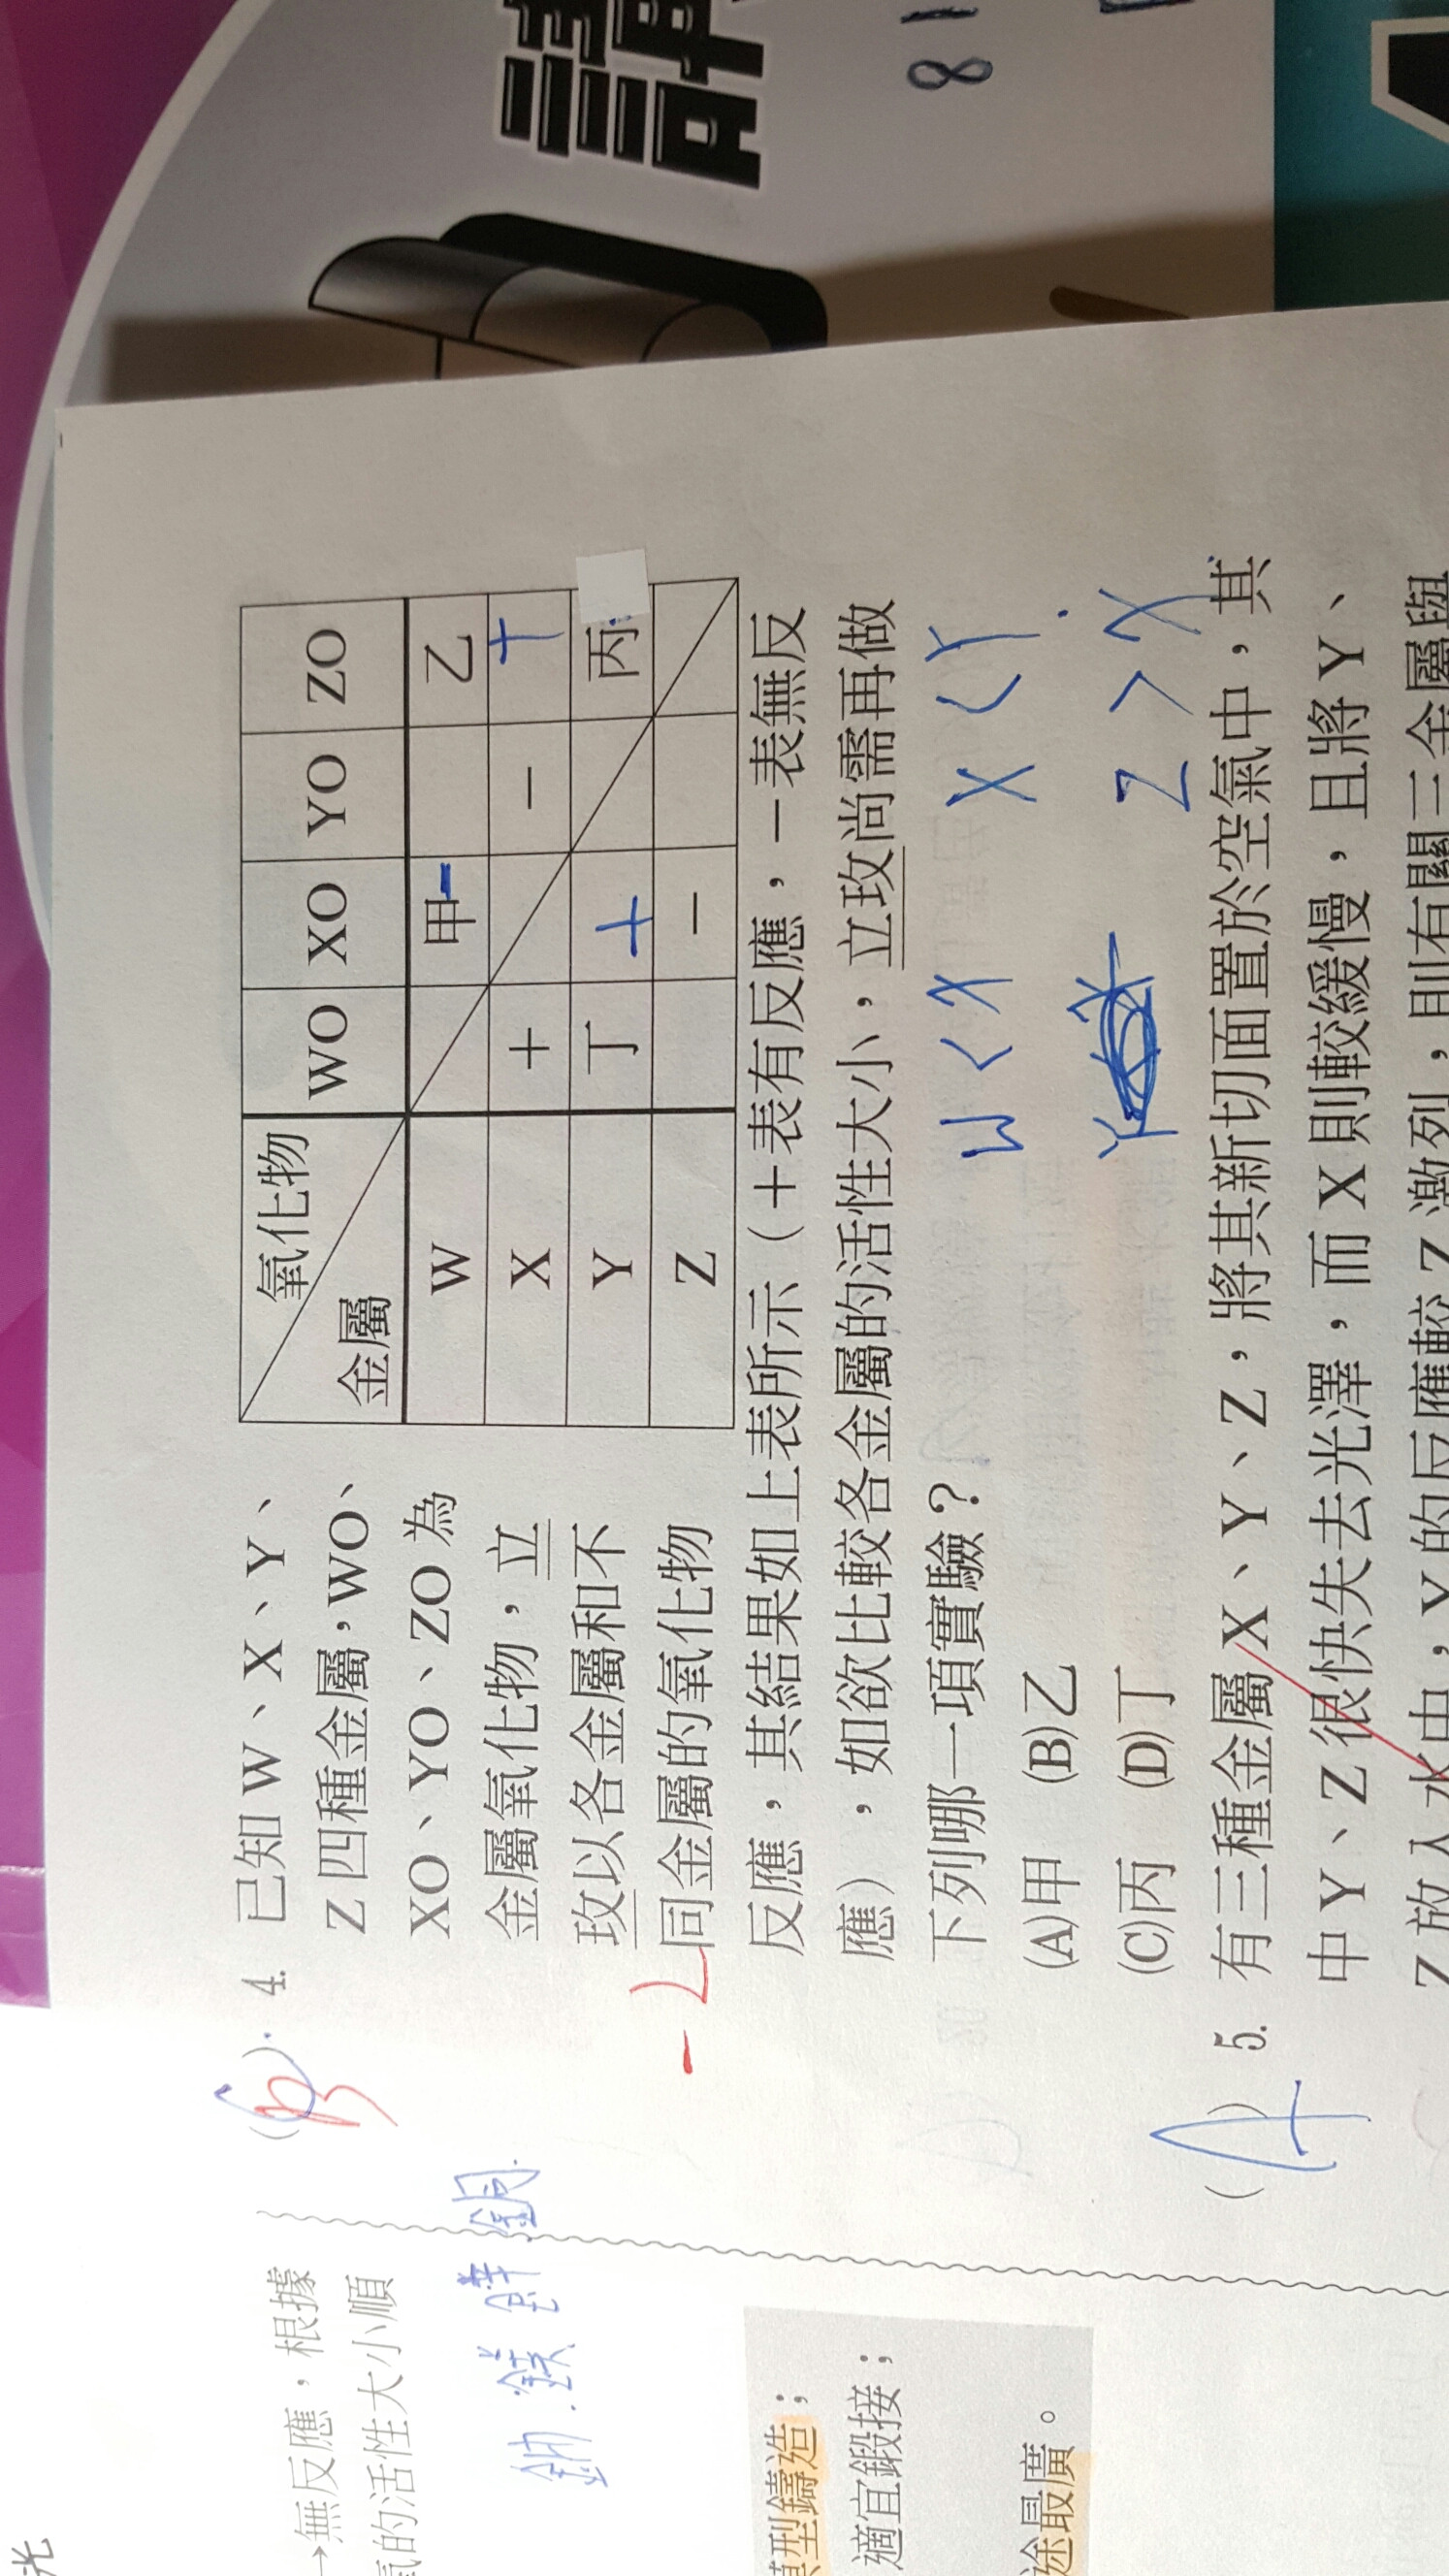 8 1
(B). 4. 已知 W、X、Y、
Z 四種金屬，WO、
XO、YO、ZO 為
金屬氧化物，立
玫以各金屬和不
同金屬的氧化物
反應，其結果如上表所示（＋表有反應，－表無反
應），如欲比較各金屬的活性大小，立玫尚需再做
下列哪一項實驗？
(A)甲 (B)乙
(C)丙 (D)丁
氧化物 金屬 WO XO YO ZO
W 甲 － 乙
X ＋ － ＋
Y 丁 ＋ 丙
Z －
- 2
W < X X < Y
Z > X
( A ) 5. 有三種金屬 X、Y、Z，將其新切面置於空氣中，其
中 Y、Z 很快失去光澤，而 X 則較緩慢，且將 Y、
Z 放入水中，Y 的反應較 Z 激烈，則有關三金屬與
→無反應，根據
氧的活性大小順
鈉 鎂 鋅 銅
模型鑄造；
適宜鍛接；
途最廣。
光